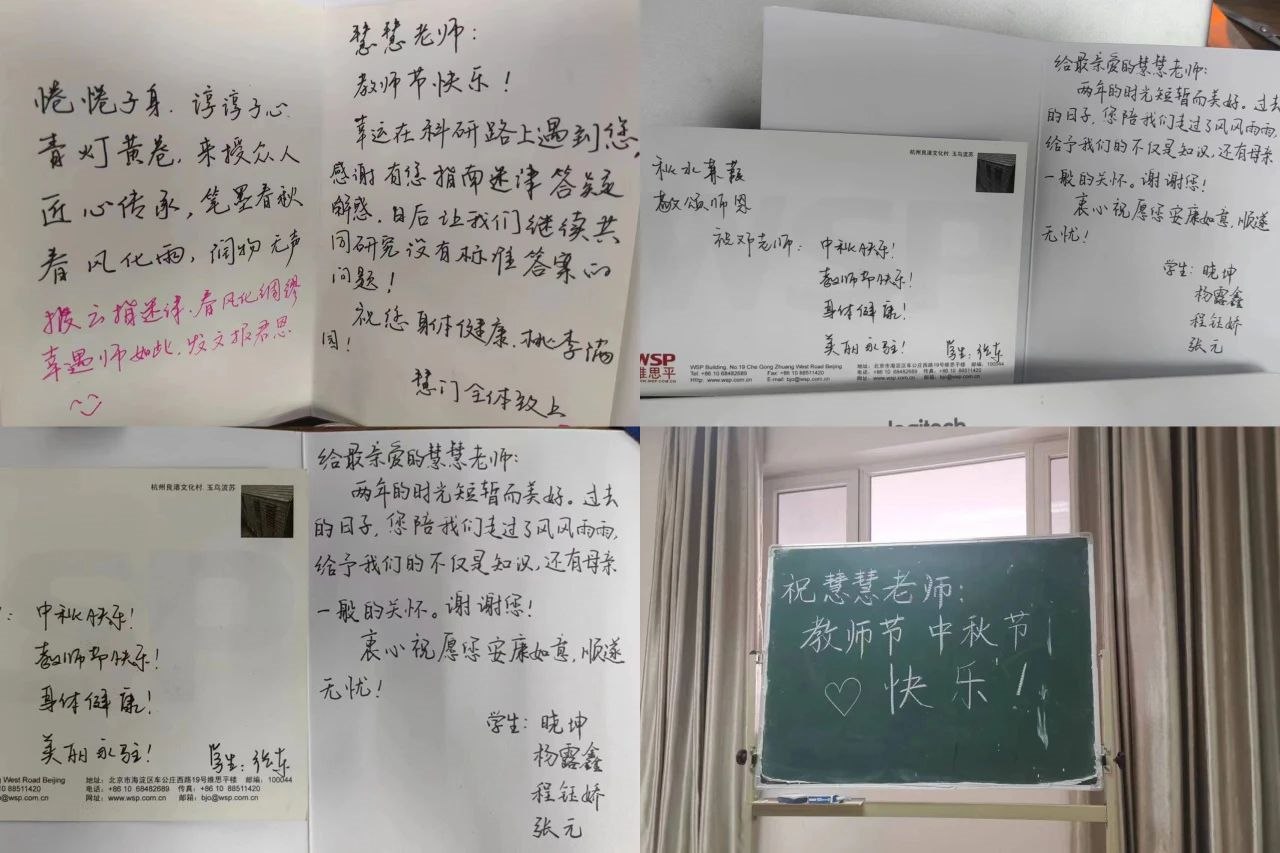 惓惓子身，谆谆子心
青灯黄卷，来授众人
匠心传承，笔墨春秋
春风化雨，润物无声
拨云指迷津，春风化绸缪
幸遇师如此，发文报君恩
慧慧老师：
教师节快乐！
幸运在科研路上遇到您，
感谢有您指南迷津答疑
解惑，日后让我们继续共
同研究没有标准答案的
问题！
祝您身体健康，桃李满
园！
慧门全体致上
杭州良渚文化村.玉鸟流苏
秋水蒹葭
敬颂师恩
祝邓老师：中秋快乐！
教师节快乐！
身体健康！
美丽永驻！
学生：
WSP
维思平
WWW.WSP.COM.CN
WSP Building, No.19 Che Gong Zhuang West Road Beijing
Tel: +86 10 68482689 Fax: +86 10 88511420
Http: www.wsp.com.cn E-mail: bjo@wsp.com.cn
地址：北京市海淀区车公庄西路19号维思平楼 邮编：100044
电话：+86 10 68482689 传真：+86 10 88511420
网址：www.wsp.com.cn 邮箱：bjo@wsp.com.cn
给最亲爱的慧慧老师：
两年的时光短暂而美好。过去
的日子，您陪我们走过了风风雨雨，
给予我们的不仅是知识，还有母亲
一般的关怀。谢谢您！
衷心祝愿您安康如意，顺遂
无忧！
学生：晓坤
杨露鑫
程钰娇
张元
logitech
杭州良渚文化村.玉鸟流苏
：中秋快乐！
教师节快乐！
身体健康！
美丽永驻！
学生：
West Road Beijing
10 88511420
@wsp.com.cn
地址：北京市海淀区车公庄西路19号维思平楼 邮编：100044
电话：+86 10 68482689 传真：+86 10 88511420
网址：www.wsp.com.cn 邮箱：bjo@wsp.com.cn
给最亲爱的慧慧老师：
两年的时光短暂而美好。过去
的日子，您陪我们走过了风风雨雨，
给予我们的不仅是知识，还有母亲
一般的关怀。谢谢您！
衷心祝愿您安康如意，顺遂
无忧！
学生：晓坤
杨露鑫
程钰娇
张元
祝慧慧老师：
教师节中秋节
快乐！